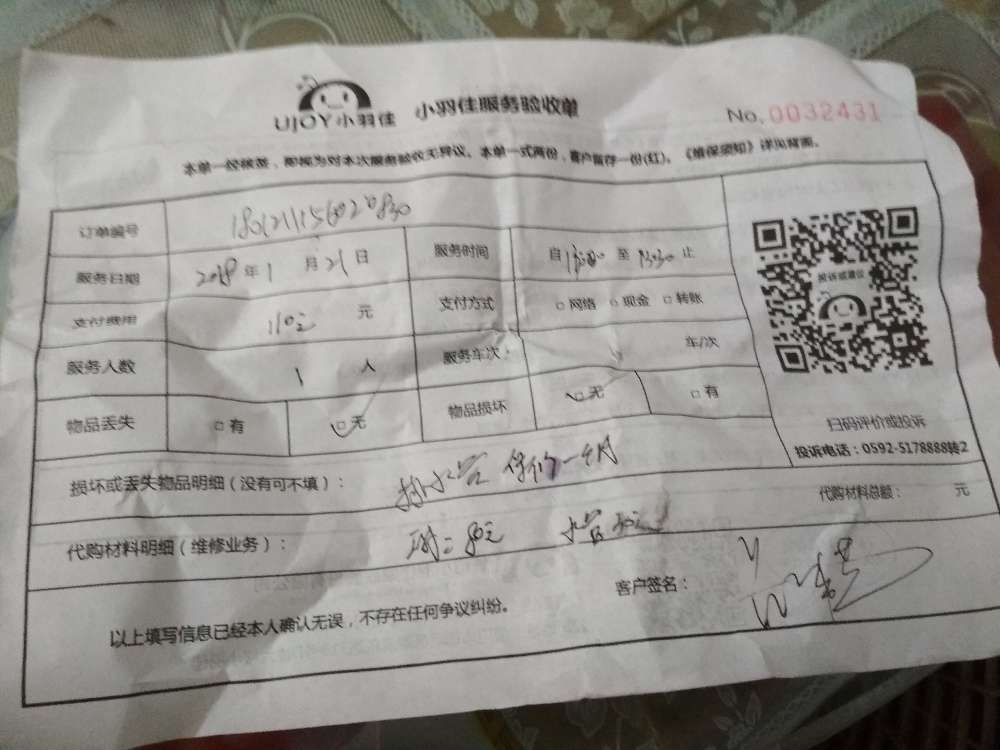 UJOY小羽佳 小羽佳服务验收单 No. 0032431
本单一经核签，即视为对本次服务验收无异议。本单一式两份，客户留存一份(红)。《维保须知》详见背面。
订单编号
服务日期 2018年1月21日 服务时间 自 至 止
支付费用 110元 元 支付方式 □网络 □现金 □转账
服务人数 1 人 服务车次： 车/次
物品丢失 □有 □无 物品损坏 □无 □有
投诉或建议
扫码评价或投诉
投诉电话：0592-5178888转2
损坏或丢失物品明细（没有可不填）： 排水管 保修一个月
代购材料总额： 元
代购材料明细（维修业务）： 80元 水管 30元
客户签名：
以上填写信息已经本人确认无误，不存在任何争议纠纷。